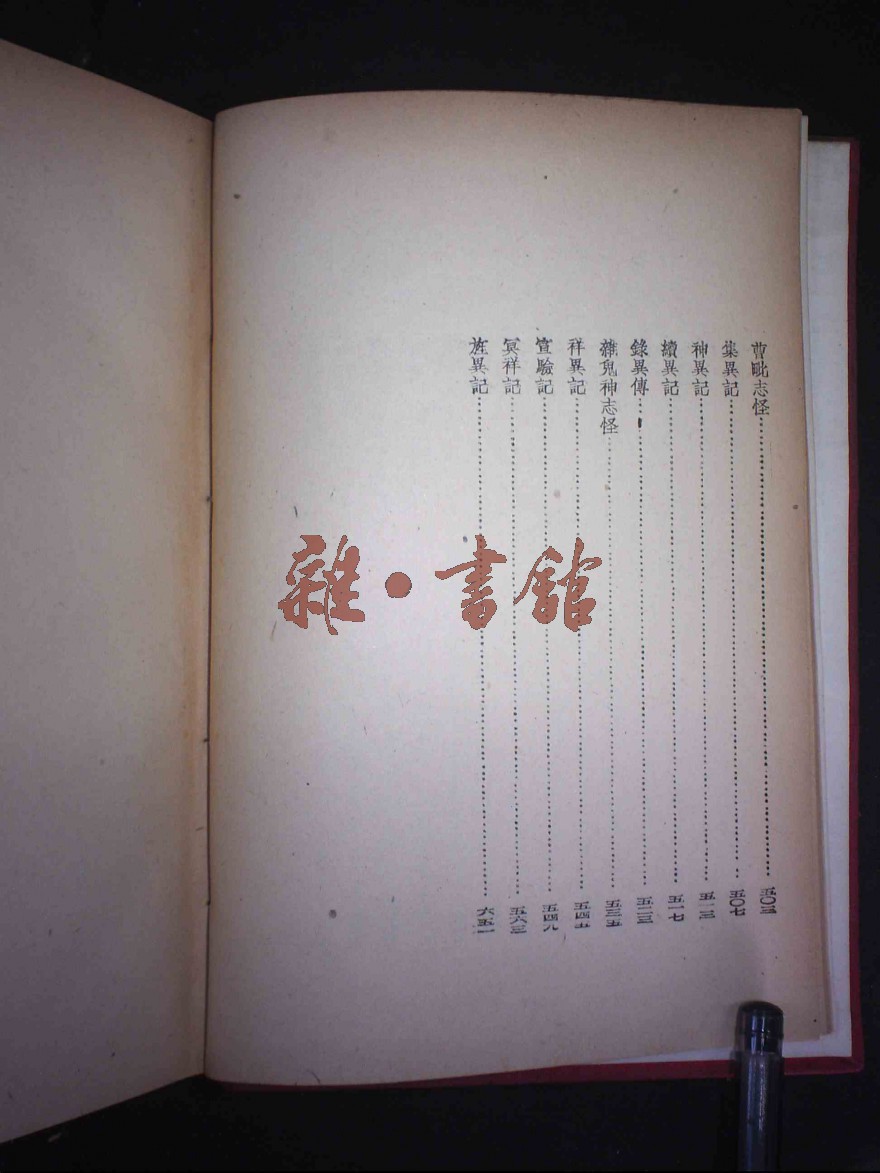 曹毗志怪……五〇三
集異記……五〇七
神異記……五一三
續異記……五一七
錄異傳……五二三
雜鬼神志怪……五三五
祥異記……五四五
宣驗記……五四九
冥祥記……五六三
旌異記……六五一
雜·書館